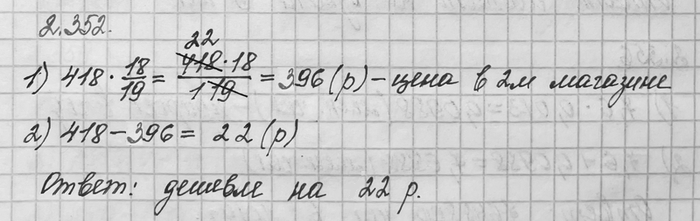 2.352.
1) 418 · 18/19 = 22 418 · 18 / 1 19 = 396 (р) – цена в 2м магазине
2) 418 – 396 = 22 (р)
Ответ: дешевле на 22 р.